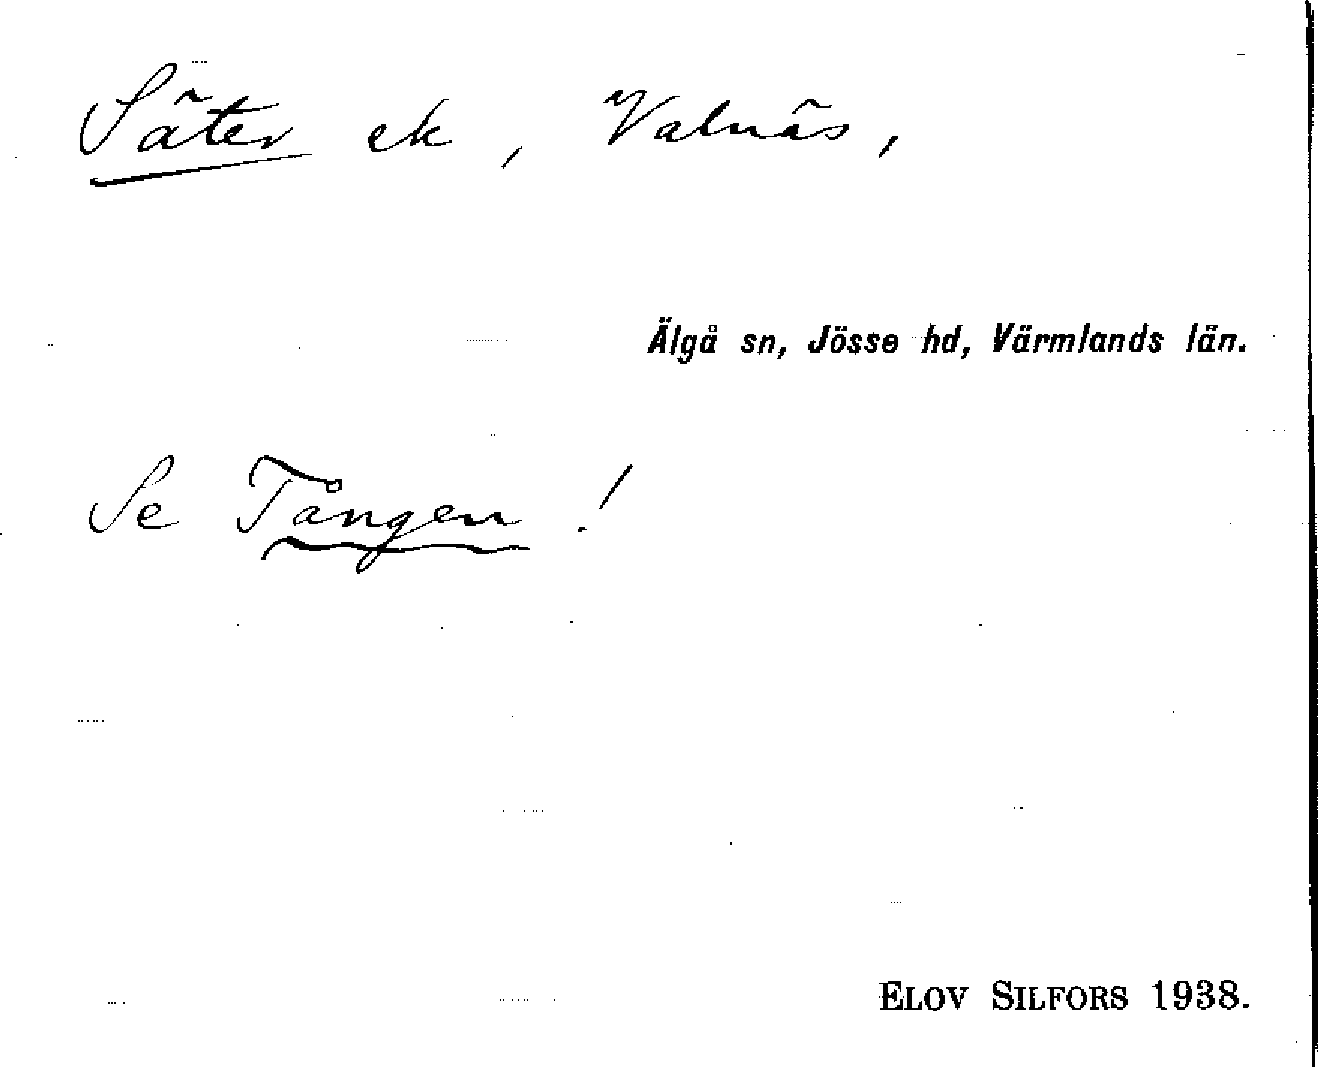 Säter ek, Valnäs,
Älgå sn, Jösse hd, Värmlands län.
Se Tången!
ELOV SILFORS 1938.